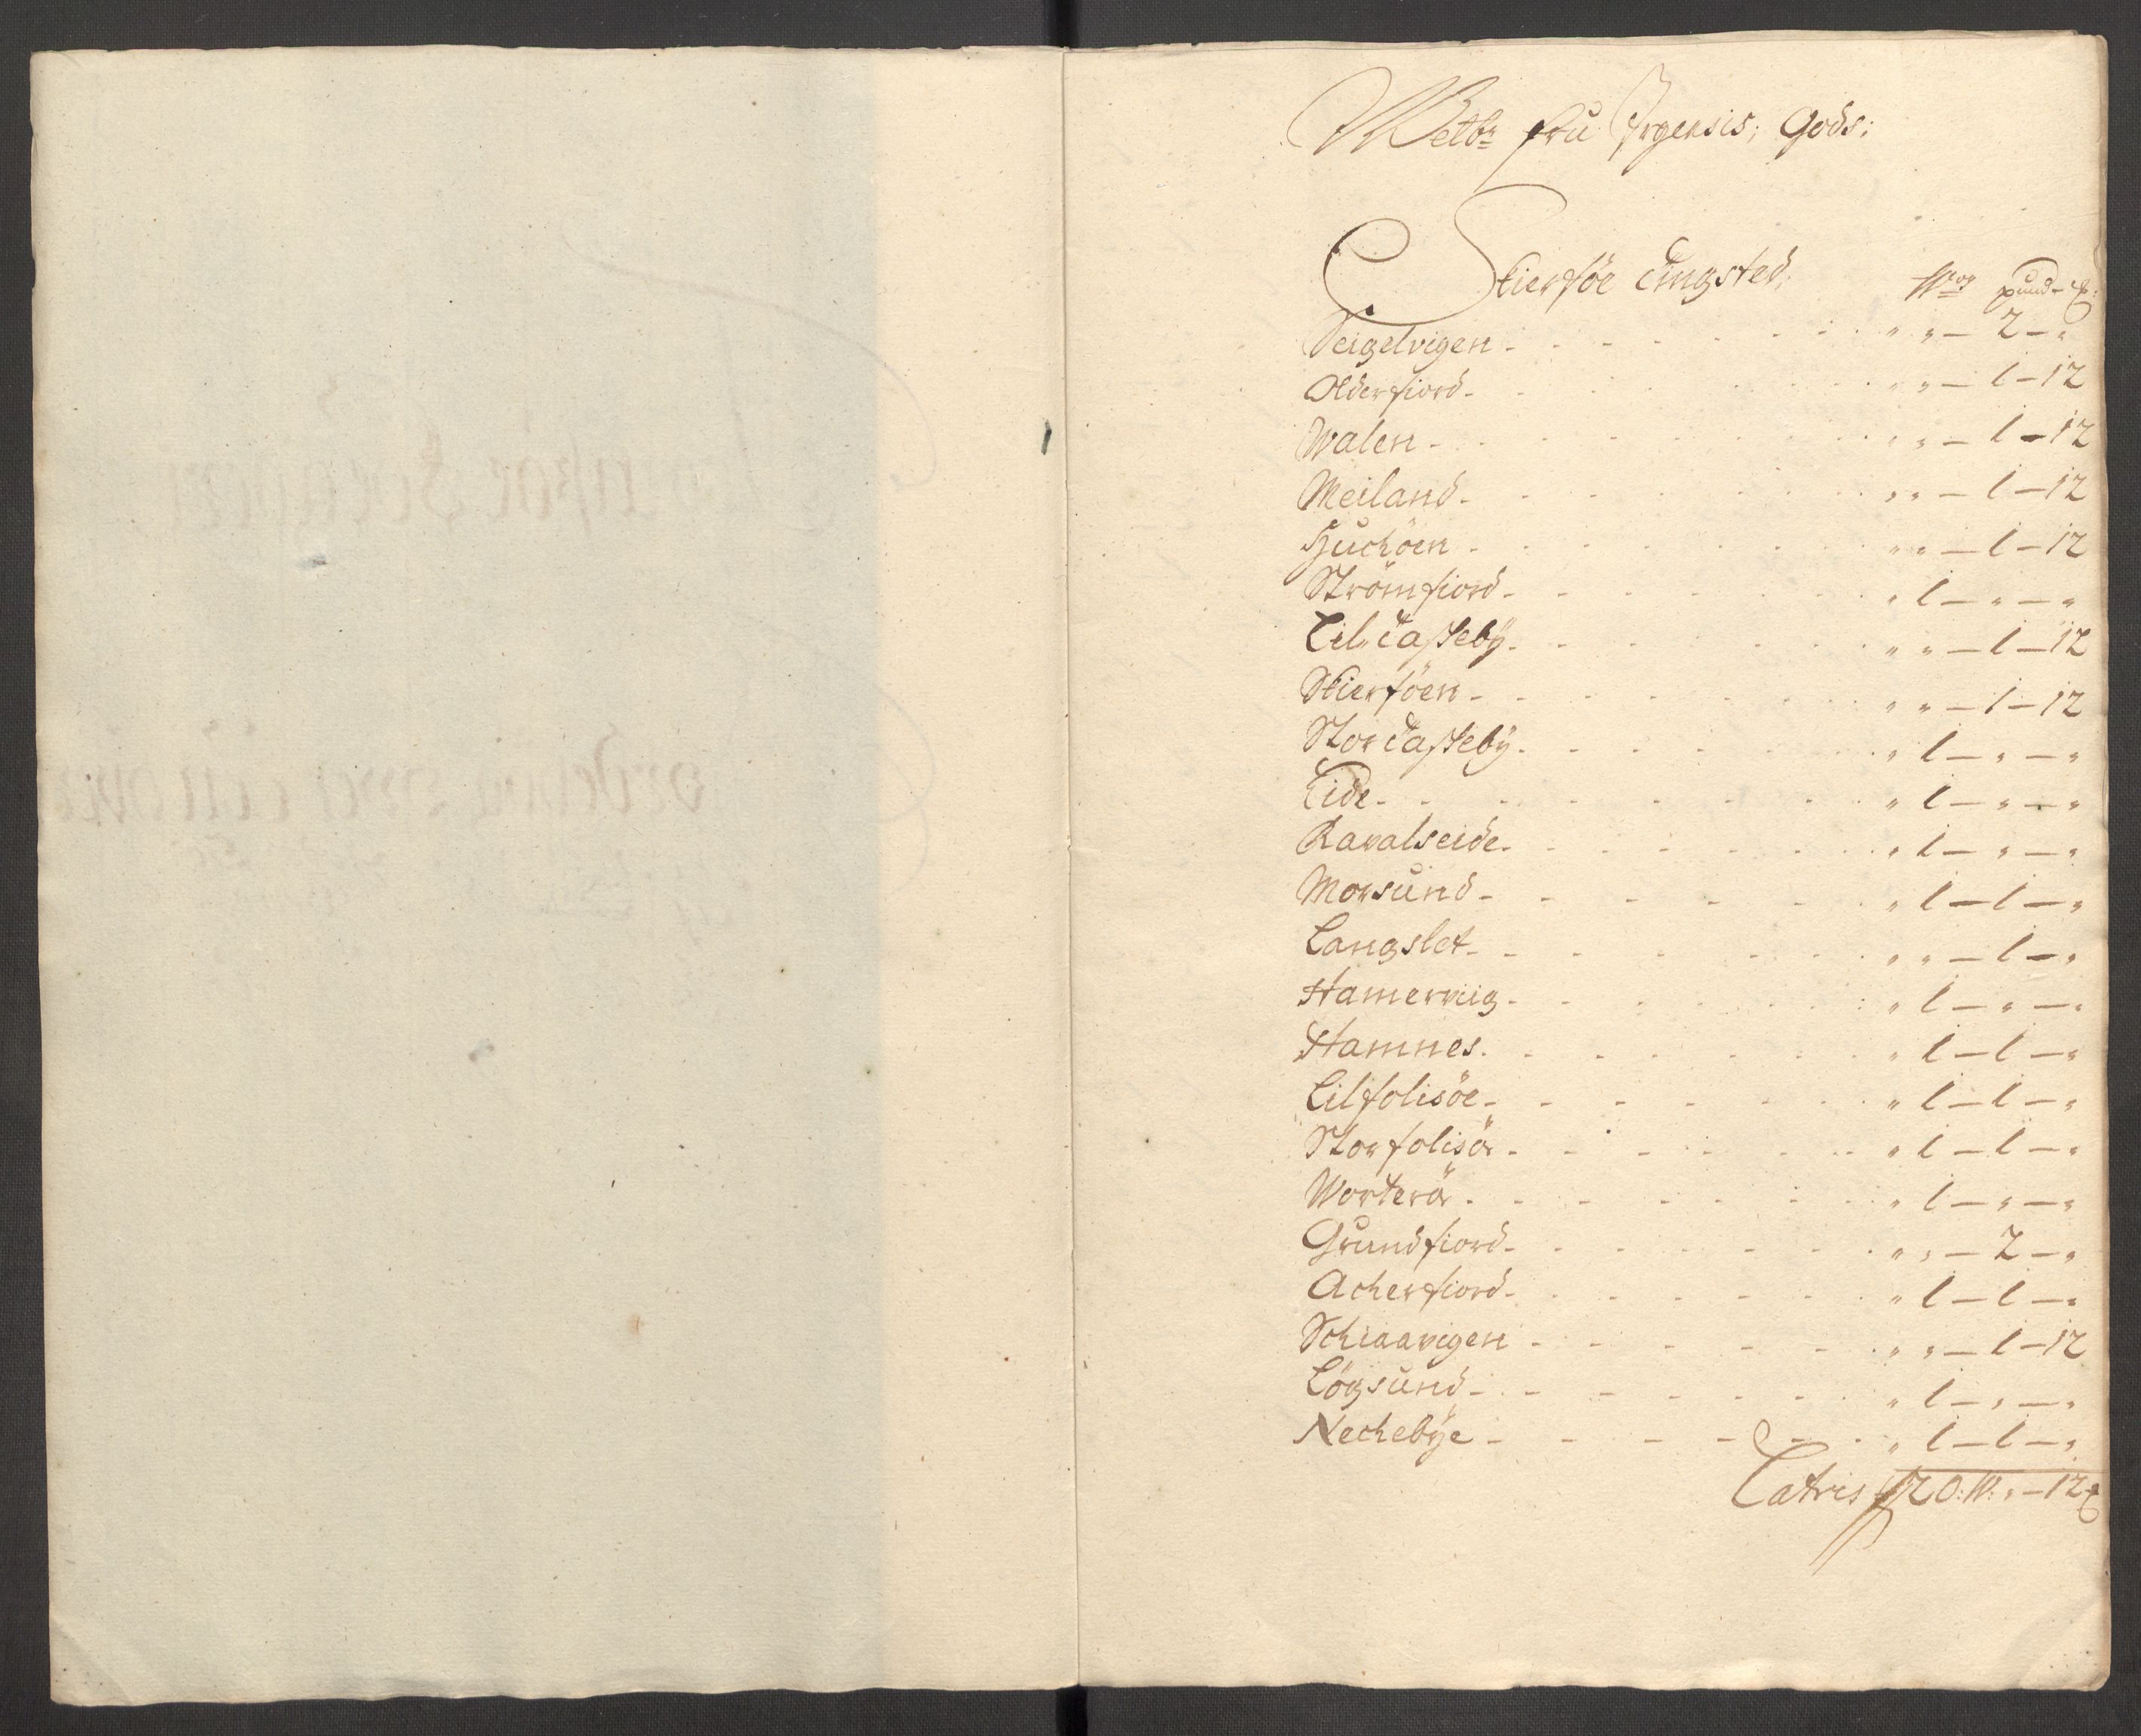 Welbr fru Irgensis; Gods;
Skierföe Tingsted; Wog pund ℔:
Seigelvigen - - - - - - - „ „ — 2 — „
Olderfiord - - - - - - - „ „ — 1 — 12
Walen - - - - - - - „ „ — 1 — 12
Meiland - - - - - - - „ „ — 1 — 12
Huchöen - - - - - - - „ „ — 1 — 12
Strömfiord - - - - - - - „ 1 — „ — „
Lil Taskeby - - - - - - - „ „ — 1 — 12
Skierföen - - - - - - - „ „ — 1 — 12
Stor Taskeby - - - - - - - „ 1 — „ — „
Eide - - - - - - - „ 1 — „ — „
Ravalseide - - - - - - - „ 1 — „ — „
Morsund - - - - - - - „ 1 — 1 — „
Langslet - - - - - - - „ „ — 1 — „
Hamerviig - - - - - - - „ 1 — „ — „
Hamnes - - - - - - - „ 1 — 1 — „
Lilfolisöe - - - - - - - „ 1 — 1 — „
Storfolisöe - - - - - - - „ 1 — 1 — „
Worteröe - - - - - - - „ 1 — „ — „
Grundfiord - - - - - - - „ „ — 2 — „
Acherfiord - - - - - - - „ 1 — 1 — „
Schiaavigen - - - - - - - „ „ — 1 — 12
Lögsund - - - - - - - „ 1 — „ — „
Nechebÿe - - - - - - - „ 1 — 1 — „
Latris 20: W: „ — 12 ℔